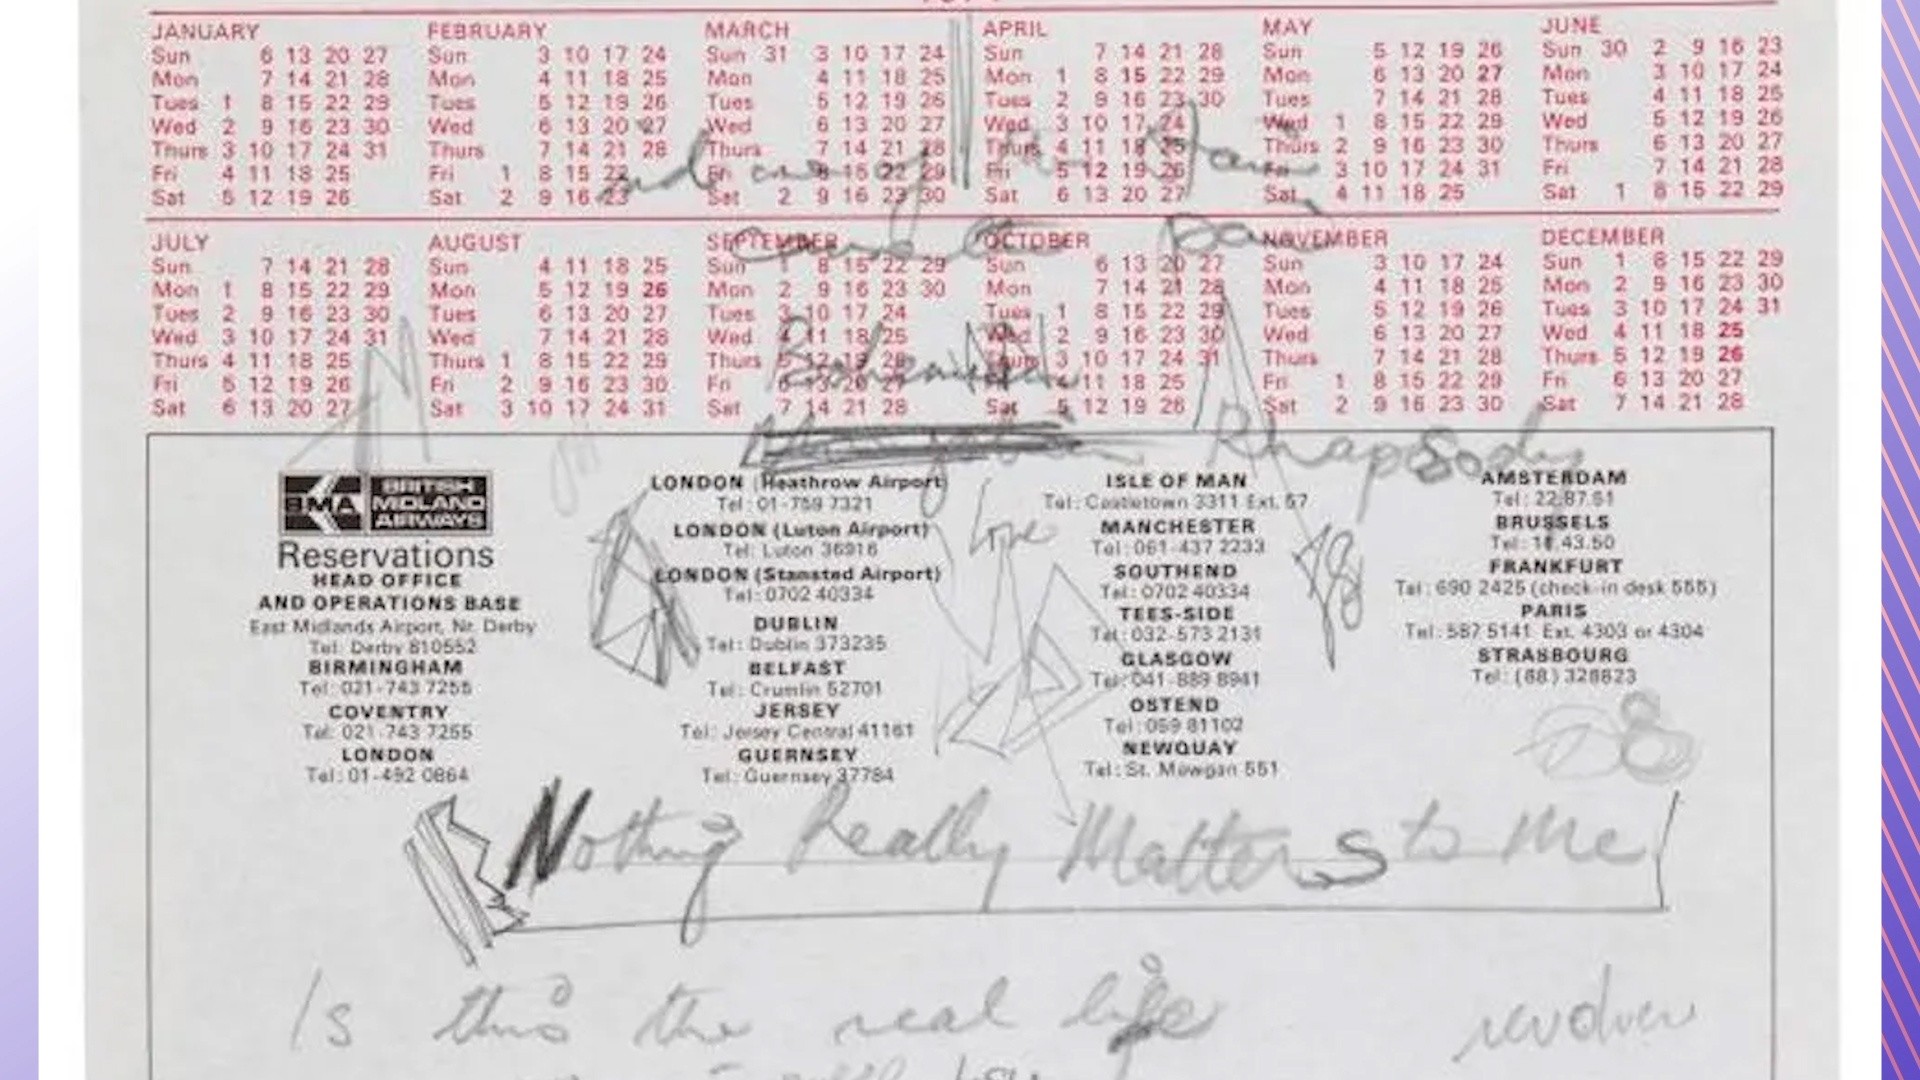 JANUARY
Sun 6 13 20 27
Mon 7 14 21 28
Tues 1 8 15 22 29
Wed 2 9 16 23 30
Thurs 3 10 17 24 31
Fri 4 11 18 25
Sat 5 12 19 26
FEBRUARY
Sun 3 10 17 24
Mon 4 11 18 25
Tues 5 12 19 26
Wed 6 13 20 27
Thurs 7 14 21 28
Fri 1 8 15 22
Sat 2 9 16 23
MARCH
Sun 31 3 10 17 24
Mon 4 11 18 25
Tues 5 12 19 26
Wed 6 13 20 27
Thurs 7 14 21 28
Fri 1 8 15 22 29
Sat 2 9 16 23 30
APRIL
Sun 7 14 21 28
Mon 1 8 15 22 29
Tues 2 9 16 23 30
Wed 3 10 17 24
Thurs 4 11 18 25
Fri 5 12 19 26
Sat 6 13 20 27
MAY
Sun 5 12 19 26
Mon 6 13 20 27
Tues 7 14 21 28
Wed 1 8 15 22 29
Thurs 2 9 16 23 30
Fri 3 10 17 24 31
Sat 4 11 18 25
JUNE
Sun 30 2 9 16 23
Mon 3 10 17 24
Tues 4 11 18 25
Wed 5 12 19 26
Thurs 6 13 20 27
Fri 7 14 21 28
Sat 1 8 15 22 29
JULY
Sun 7 14 21 28
Mon 1 8 15 22 29
Tues 2 9 16 23 30
Wed 3 10 17 24 31
Thurs 4 11 18 25
Fri 5 12 19 26
Sat 6 13 20 27
AUGUST
Sun 4 11 18 25
Mon 5 12 19 26
Tues 6 13 20 27
Wed 7 14 21 28
Thurs 1 8 15 22 29
Fri 2 9 16 23 30
Sat 3 10 17 24 31
SEPTEMBER
Sun 1 8 15 22 29
Mon 2 9 16 23 30
Tues 3 10 17 24
Wed 4 11 18 25
Thurs 5 12 19 26
Fri 6 13 20 27
Sat 7 14 21 28
OCTOBER
Sun 6 13 20 27
Mon 7 14 21 28
Tues 1 8 15 22 29
Wed 2 9 16 23 30
Thurs 3 10 17 24 31
Fri 4 11 18 25
Sat 5 12 19 26
NOVEMBER
Sun 3 10 17 24
Mon 4 11 18 25
Tues 5 12 19 26
Wed 6 13 20 27
Thurs 7 14 21 28
Fri 1 8 15 22 29
Sat 2 9 16 23 30
DECEMBER
Sun 1 8 15 22 29
Mon 2 9 16 23 30
Tues 3 10 17 24 31
Wed 4 11 18 25
Thurs 5 12 19 26
Fri 6 13 20 27
Sat 7 14 21 28
Bohemian
Rhapsody
BMA BRITISH MIDLAND AIRWAYS
Reservations
HEAD OFFICE
AND OPERATIONS BASE
East Midlands Airport, Nr. Derby
Tel: Derby 810552
BIRMINGHAM
Tel: 021-743 7255
COVENTRY
Tel: 021-743 7255
LONDON
Tel: 01-492 0864
LONDON (Heathrow Airport)
Tel: 01-759 7321
LONDON (Luton Airport)
Tel: Luton 36916
LONDON (Stansted Airport)
Tel: 0702 40334
DUBLIN
Tel: Dublin 373235
BELFAST
Tel: Crumlin 52701
JERSEY
Tel: Jersey Central 41161
GUERNSEY
Tel: Guernsey 37784
love
ISLE OF MAN
Tel: Castletown 3311 Ext. 57
MANCHESTER
Tel: 061-437 2233
SOUTHEND
Tel: 0702 40334
TEES-SIDE
Tel: 032-573 2131
GLASGOW
Tel: 041-889 8941
OSTEND
Tel: 059 81102
NEWQUAY
Tel: St. Mawgan 551
AMSTERDAM
Tel: 22.87.61
BRUSSELS
Tel: 18.43.50
FRANKFURT
Tel: 690 2425 (check-in desk 555)
PARIS
Tel: 587 5141 Ext. 4303 or 4304
STRASBOURG
Tel: (88) 328823
Nothing Really Matters to Me
Is this the real life
revolver